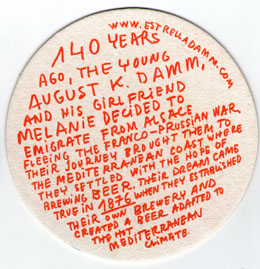 WWW.ESTRELLADAMM.COM
140 YEARS
AGO, THE YOUNG
AUGUST K. DAMM,
AND HIS GIRLFRIEND
MELANIE DECIDED TO
EMIGRATE FROM ALSACE
FLEEING THE FRANCO-PRUSSIAN WAR.
THEIR JOURNEY BROUGHT THEM TO
THE MEDITERRANEAN COAST WHERE
THEY SETTLED WITH THE HOPE OF
BREWING BEER. THEIR DREAM CAME
TRUE IN 1876 WHEN THEY ESTABLISHED
THEIR OWN BREWERY AND
CREATED A BEER ADAPTED TO
THE HOT MEDITERRANEAN
CLIMATE.